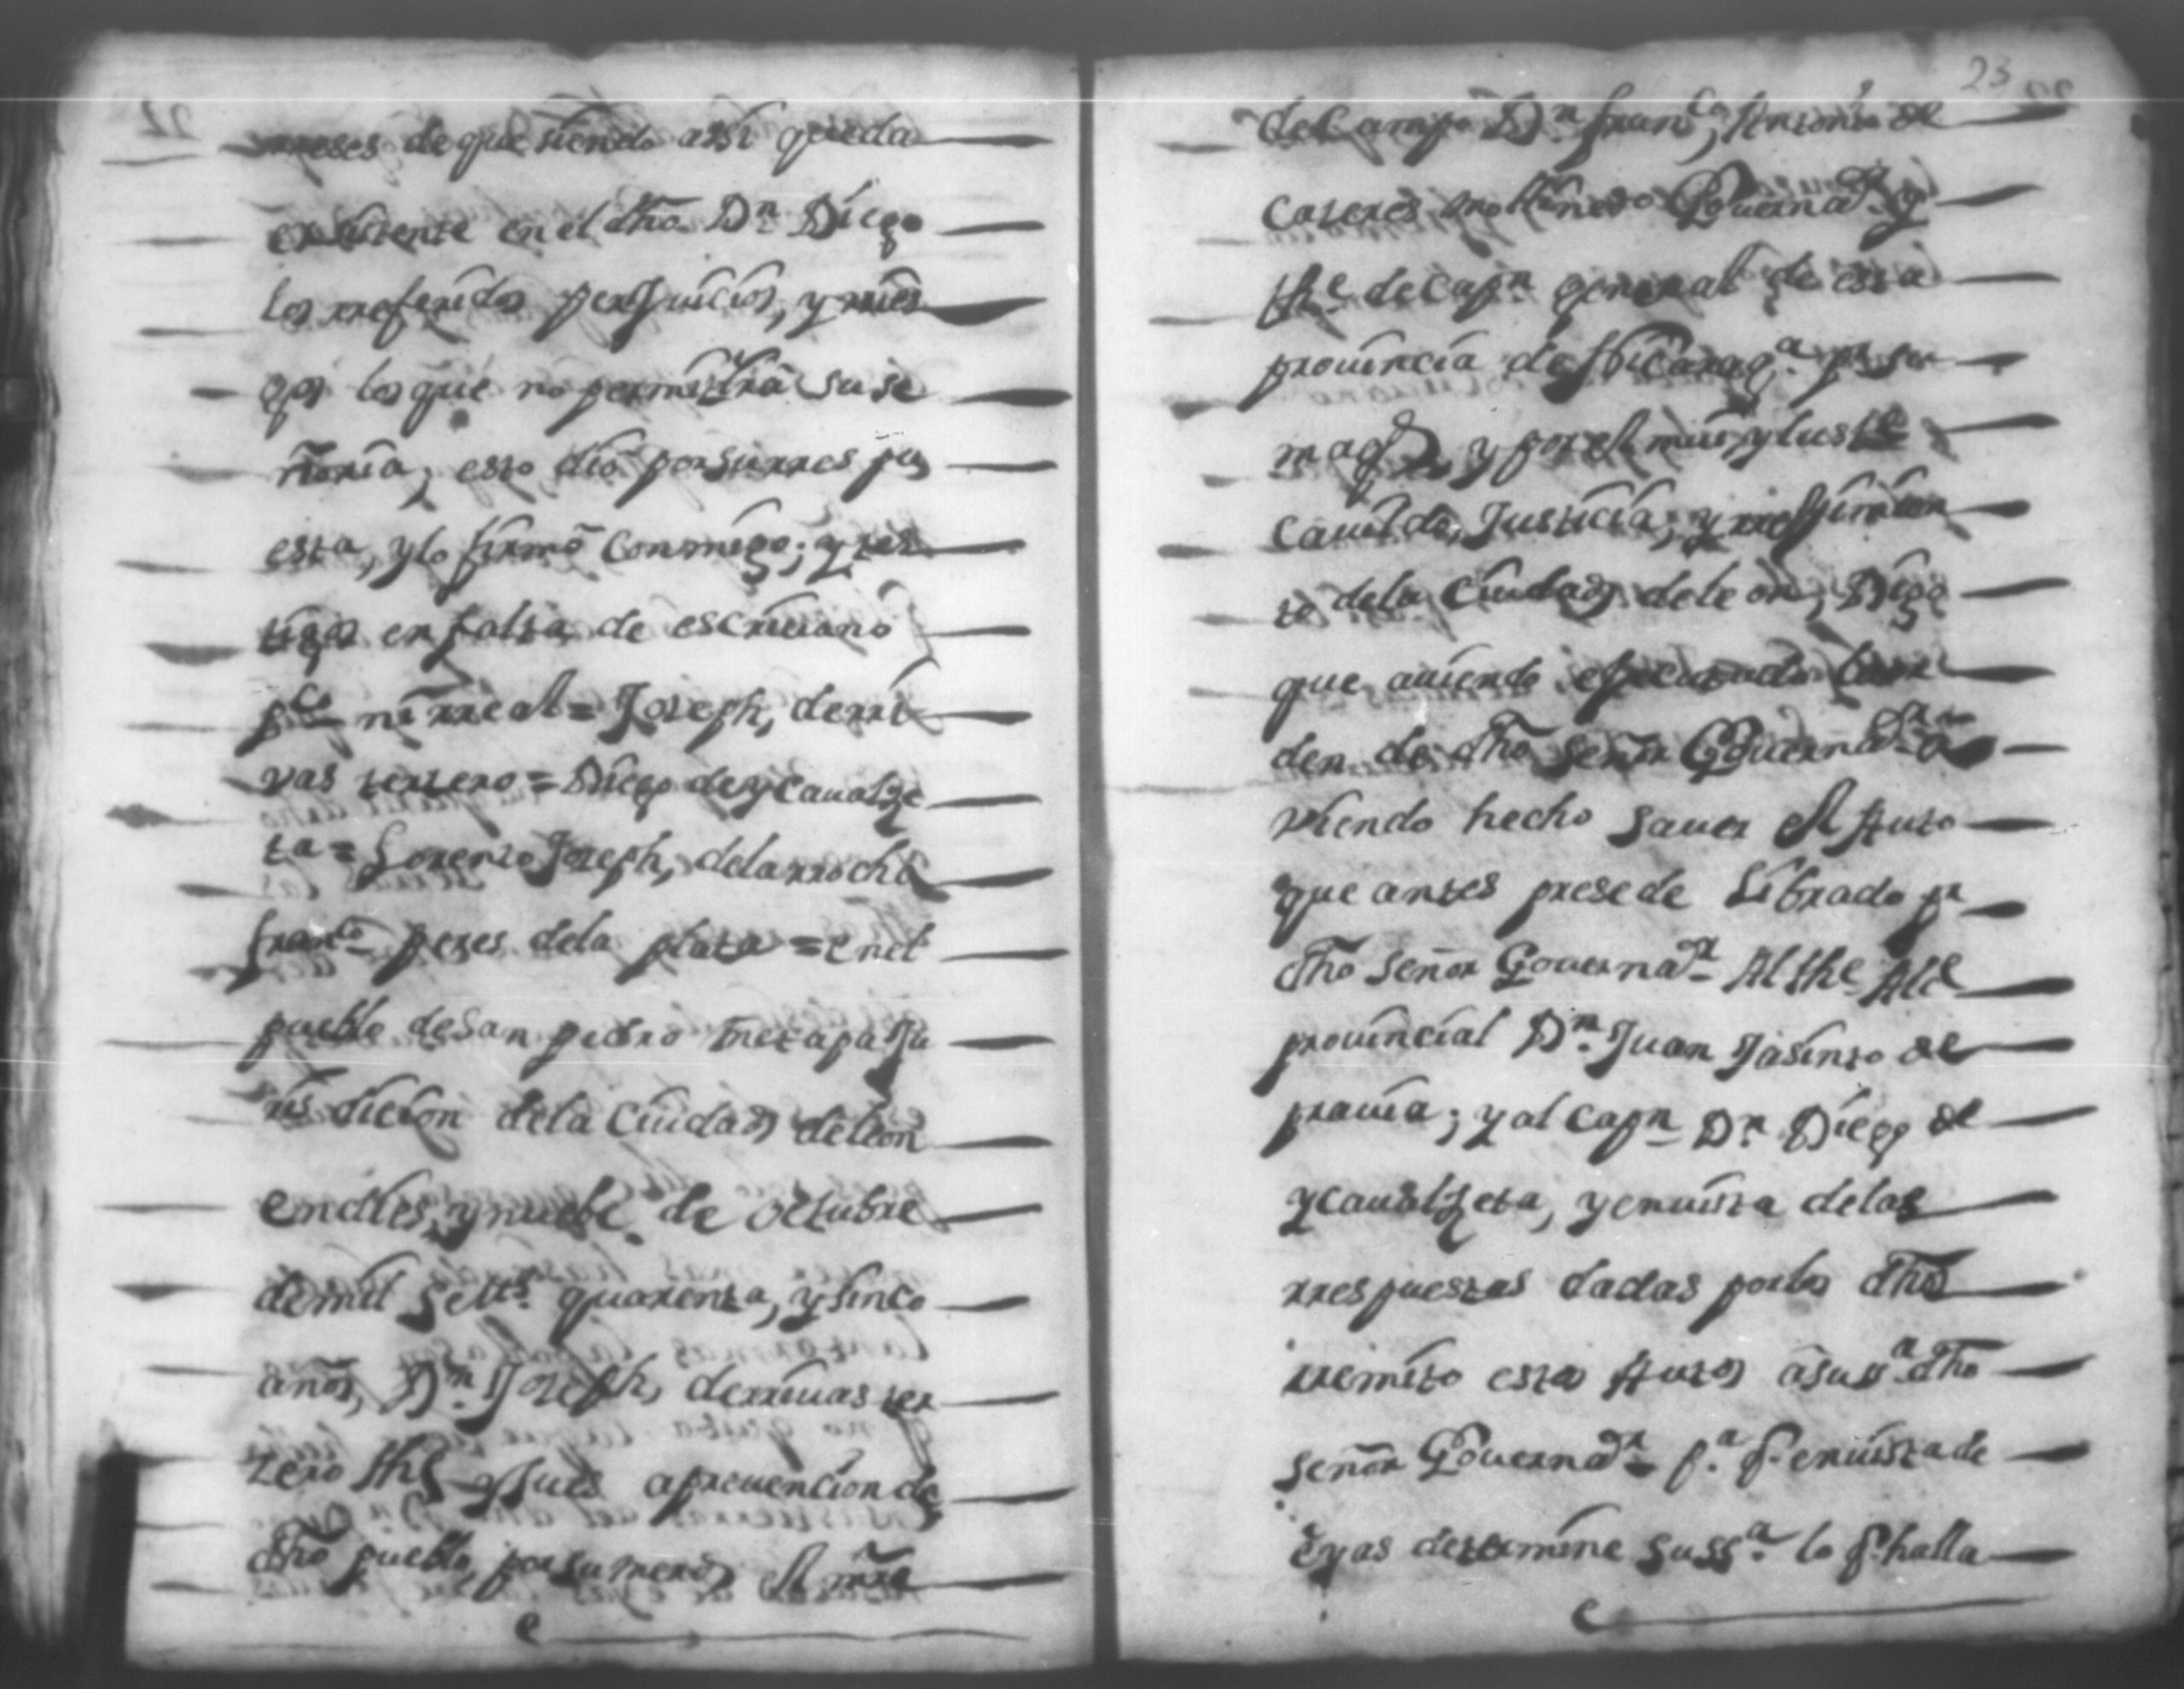 rreses de que siendo assi queda
existente en el dho Dn Diego
los rreferidos perJuicios, y ries
gos los que no permitirá su se
ñoria, esto dió por su rres pu
esta, y lo firmó Conmigo; y tes
tigos en falta, de escriuano
pco ni rreal = Joseph, de rri
vas tersero = Diego de ycaualze
ta = Lorenzo Joseph, de la rrocha
franco peres dela plata = en el
pueblo de San pedro metapa Ju
ris dicion dela Ciudad de leon
en dies, y nuebe de octubre
de mil setts quarenta, y sinco
años, Dn Joseph, de rriuas ter
zero the y Jues a preuencion de
dho pueblo, por su merd el mre
23
de Campo Dn franco Antonio de
Caseres Gouernador y
the de Capn general de esta
prouincia de Nicaraga pr su
magd y por el mui yluste
Cauildo, Justicia, y rreJimien
to dela Ciudad de leon, Digo
que auiendo la or
den de dho señor Gouernador a
viendo hecho sauer el Auto
que antes presede librado pr
dho señor Gouernador Al the Alce
prouincial Dn Juan Jasinto de
prauia; y al Capn Dn Diego de
ycaualzeta, y en uista de las
rres puestas dadas por los dhos
rremito estos Autos á su ssa dho
señor Gouernador pa q en uista de
eyas determine su ssa lo q halla